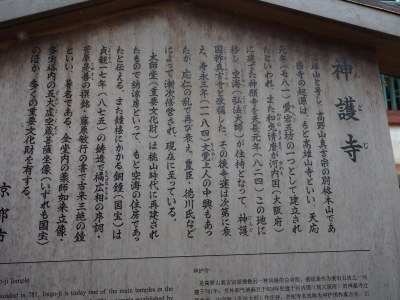 神護寺
じんごじ
高雄山と号し、高野山真言宗の別格本山である。
当寺の起源は、もと高雄山寺といい、天応
元年(七八一)愛宕五坊の一つとして建立され
たといわれ、また和気清麻呂が河内国(大阪府)
に建てた神願寺を天長元年(八二四)この地に
移し、空海(弘法大師)が住持となって、神護
国祚真言寺と改称した。その後寺運は次第に衰
え、寿永三年(一一八四)文覚上人の中興もあっ
たが、応仁の乱で再び衰え、豊臣・徳川氏など
によって漸次修営され、現在に至っている。
大師堂(重要文化財)は桃山時代に再建され
たもので納涼房といって、もと空海の住房であっ
たと伝える。また鐘楼にかかる銅鐘(国宝)は
貞観一七年(八七五)の鋳造で橘広相の序詞・
菅原是善の撰銘・藤原敏行の書で古来三絶の鐘
といい、著名である。金堂内の薬師如来立像・
多宝塔内の五大虚空蔵菩薩坐像(いずれも国宝)
のほか、多くの重要文化財を有する。
京都市
-ji Temple
ounded in 781, Jingo-ji is today one of the main temples in the
神护寺